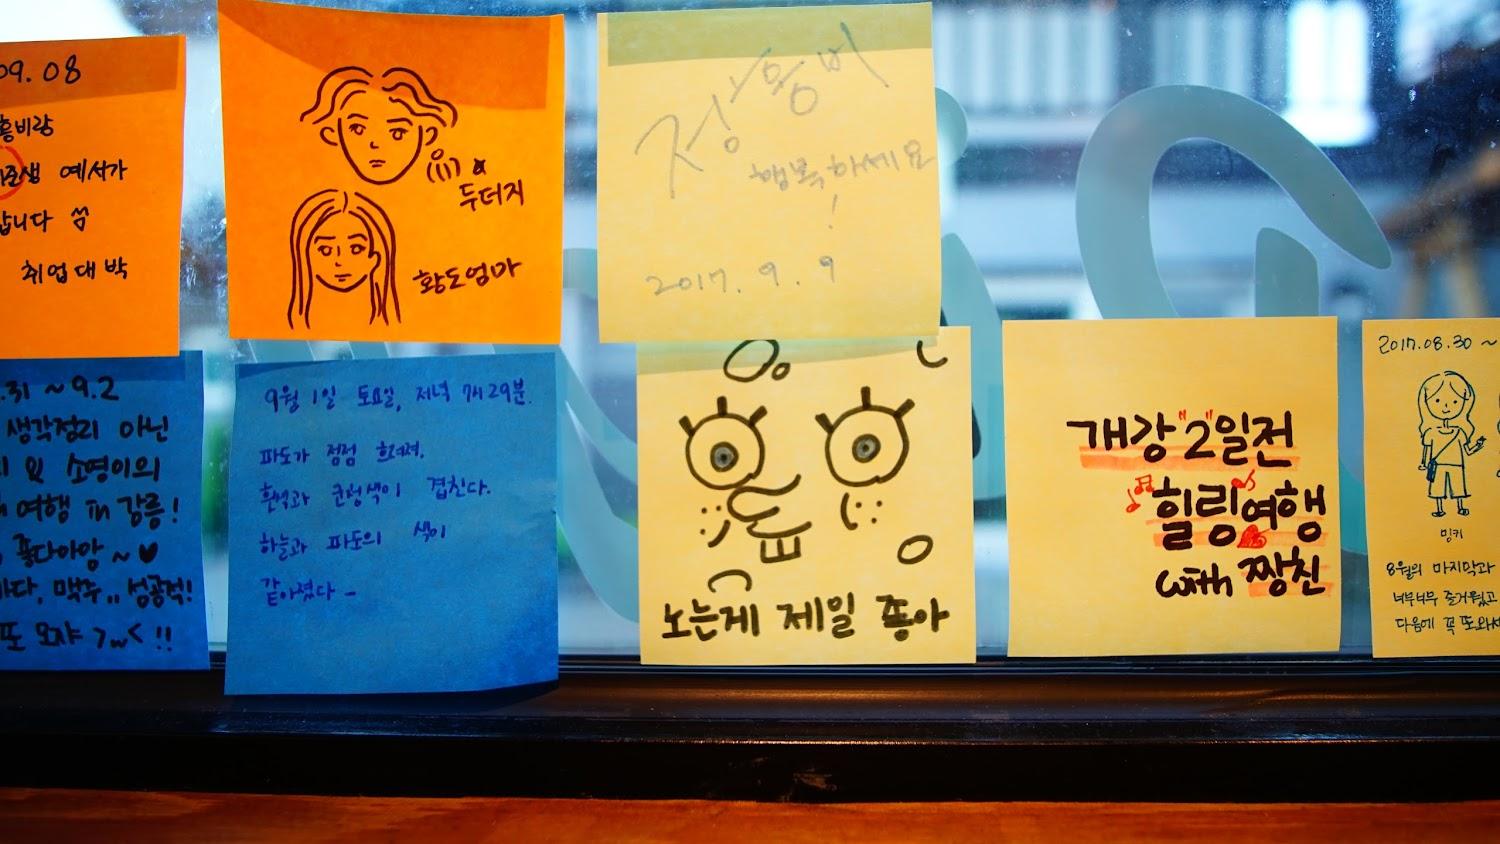 09.08
홍비랑
준생 예서가
갑니다
취업 대박
두더지
황도엄마
정홍비
행복하세요
!
2017. 9. 9
.31 ~ 9.2
생각정리 아닌
& 소영이의
여행 in 강릉!
좋다아앙~♥
맥주,, 성공적!
또 오쟈 >ω< !!
9월 1일 토요일, 저녁 7시 29분.
파도가 점점 흐려져.
흰색과 군청색이 겹친다.
하늘과 파도의 색이
같아졌다 -
노는게 제일 좋아
개강 "2"일전
힐링여행
with 짱친
2017.08.30 ~
밍키
8월의 마지막과
너무너무 즐거웠고
다음에 꼭 또와서